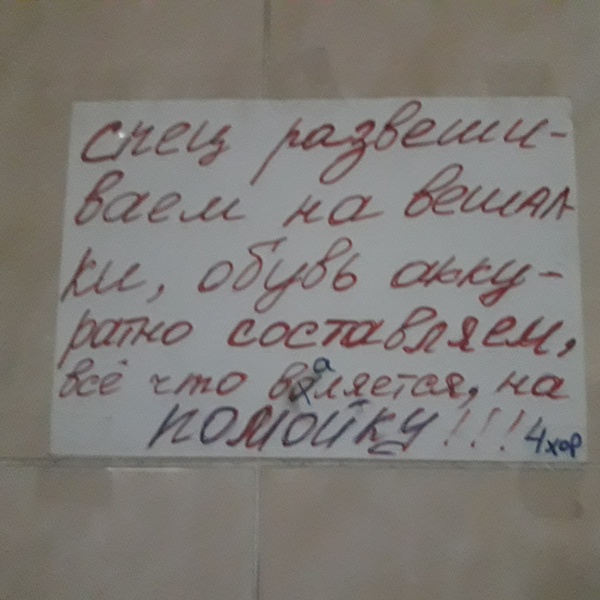 спец развеши-
ваем на вешал-
ки, обувь акку-
ратно составляем,
всё что валяется, на
помойку!!! 4 хор